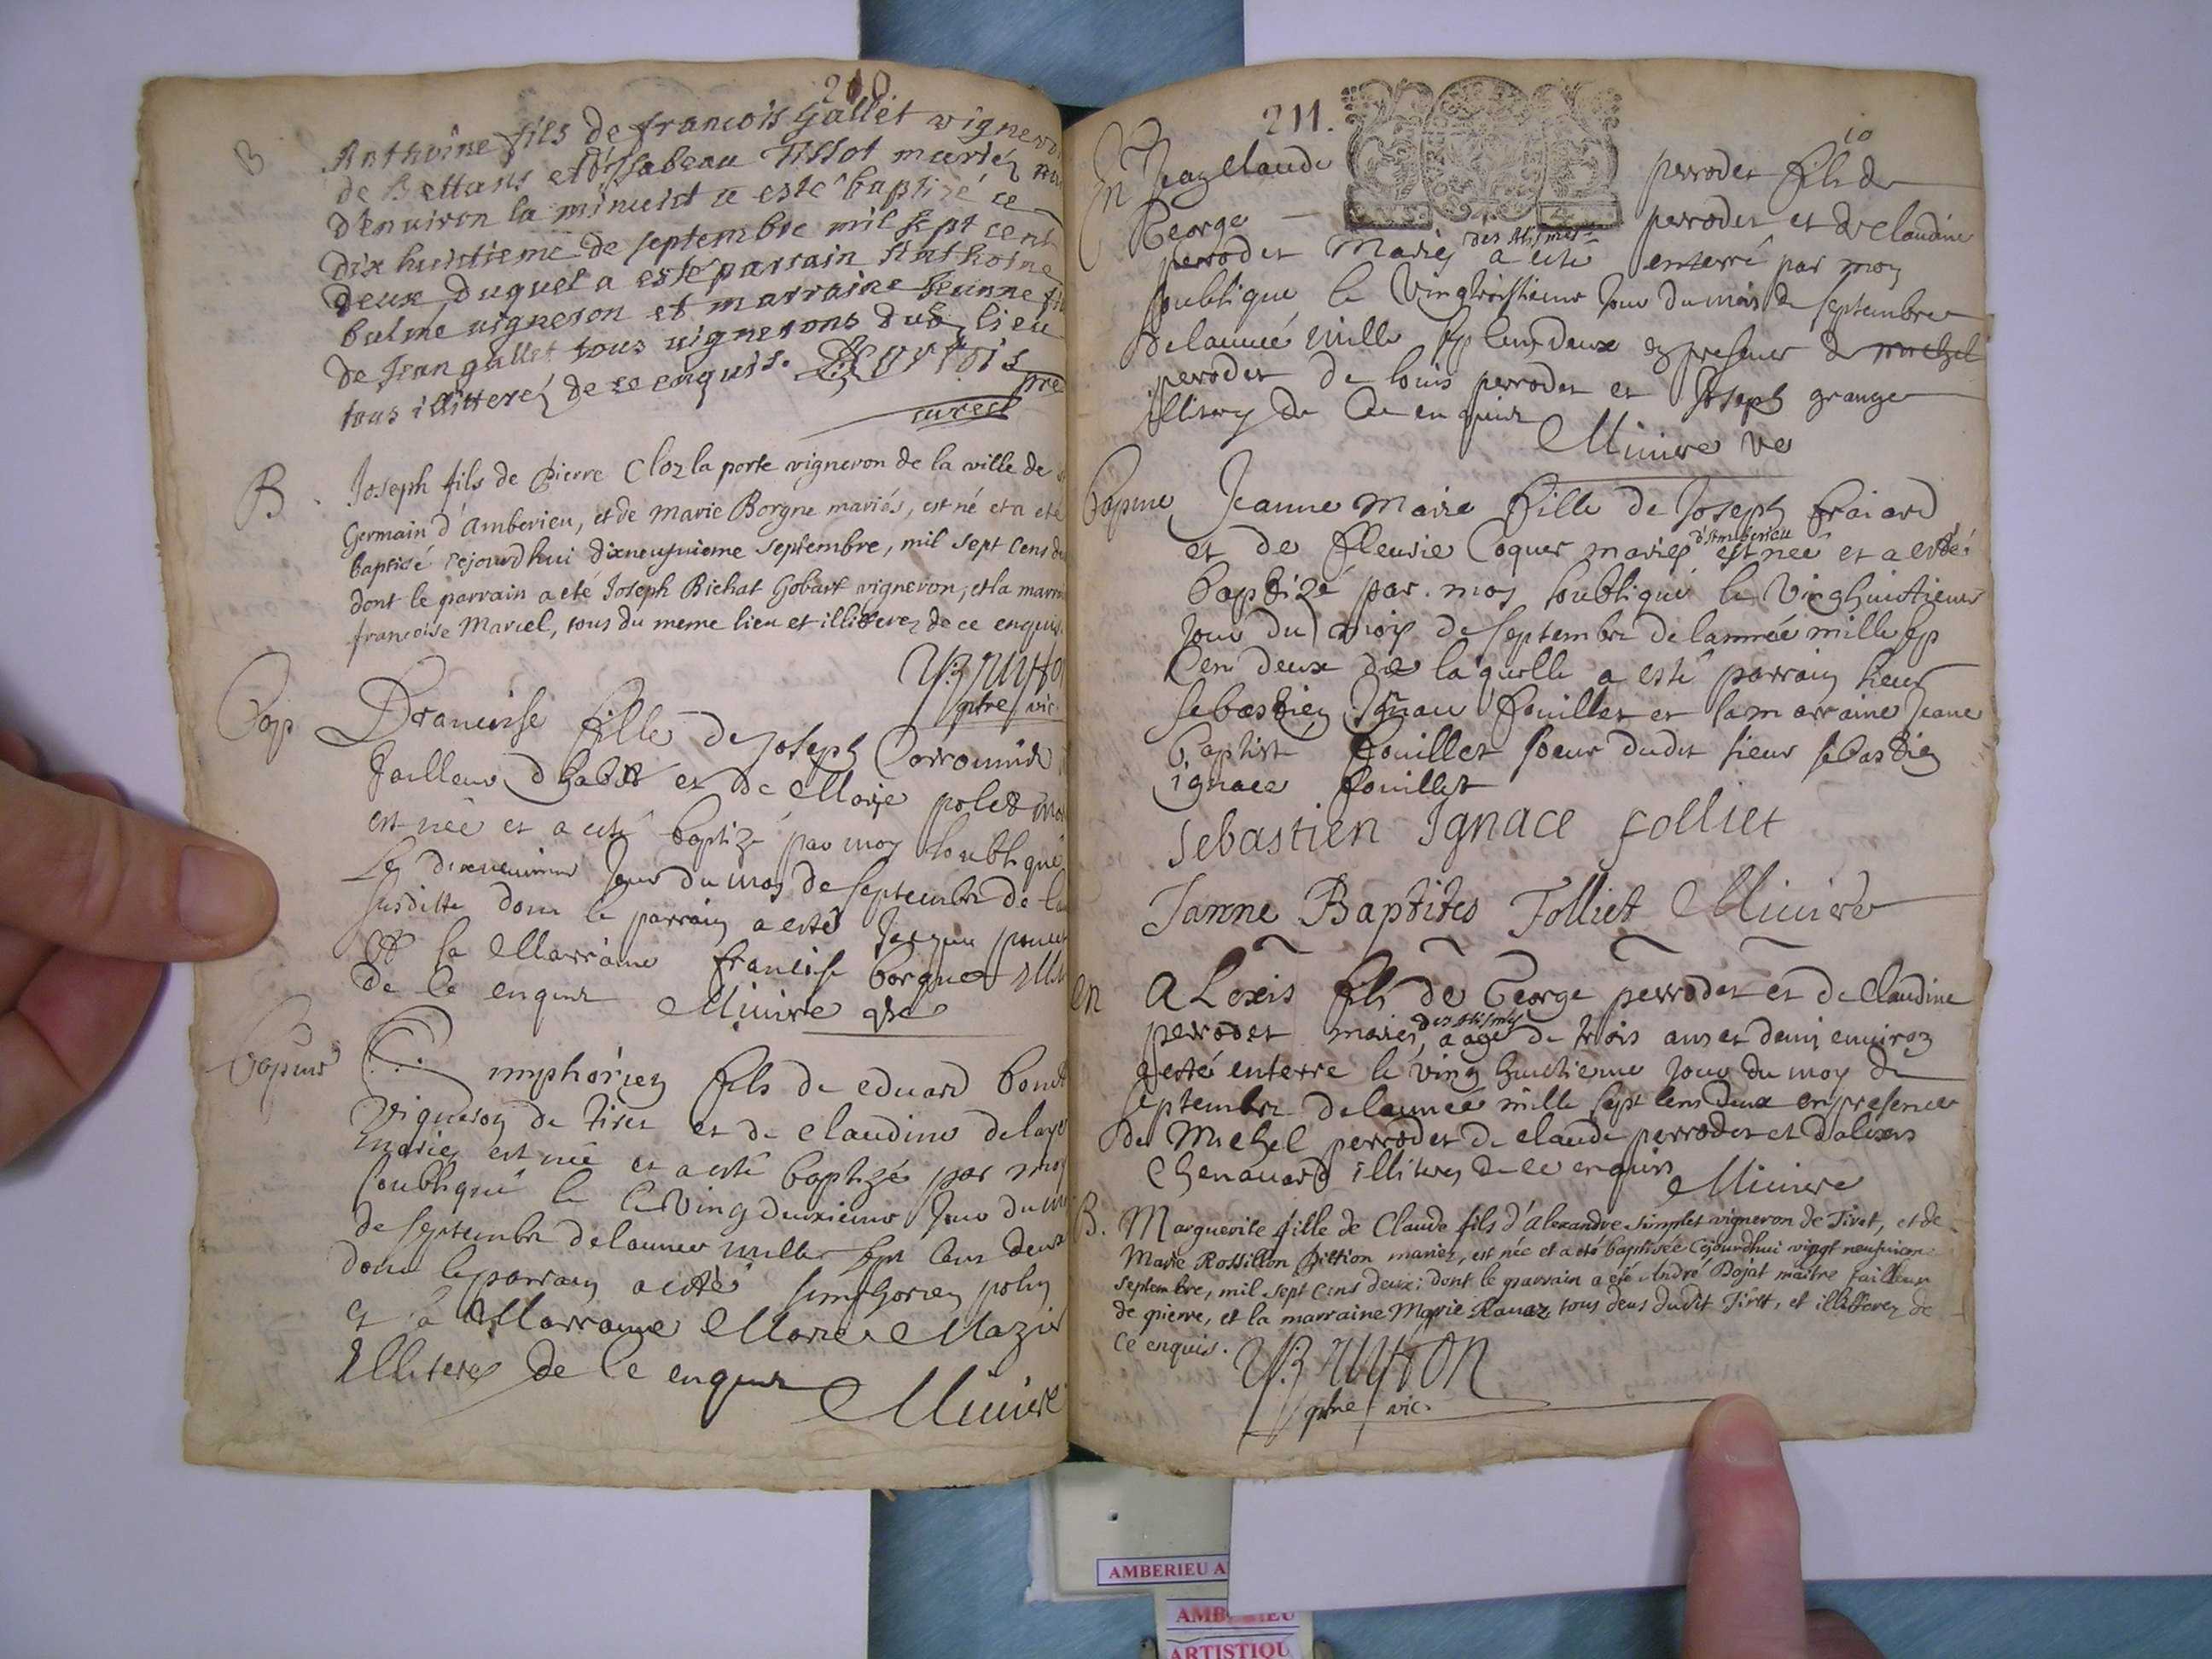 210.
B
Anthoine fils de francois Gallet vignero
de Bettans et d'issabeau Tissot mariéz
d'enuiron la minuict a esté baptizé ce
dix huictieme de septembre mil sept cent
deux, duquel a esté parrain Anthoine
balme uigneron et marraine Jeanne
de Jean gallet tous uignerons duď lieu
tous illitteréz de ce enquis.
B.
Joseph fils de Pierre Cloz la porte vigneron de la ville de
Germain d'Amberieu, et de Marie Borgne mariés, est né et a eté
baptisé cejourd'hui dixneufuieme Septembre, mil sept Cens
dont le parrain a eté Joseph Bichat Gobart vigneron, et la marr
francoise Marcel, tous du meme lieu et illitterez de ce enquis.
ptre vic.
Bap
Francoise fille de Joseph
Tailleur d'habit et de Marie polet
est née et a esté baptizé par moy soubsigné
Le dixneuuieme Jour du moy de septembre de la
susditte dont le parrain a esté Jacque
et la Marraine francoise borgne
de ce enquis Miuiere
Bapme
fils de eduard
vigneron de tiret et de claudine
mariez est né et a esté baptizé par moy
soubsigné le le Ving deuxieme Jour du
de septembre de lannee mille sept cens deux
dont le parrain a esté simphorien
et la Marraine Marie
Illiteres de ce enquis
Miuiere
211.
10
En
Jean Claude perrodet fils de
George perrodet et de claudine
perrodet Mariez des Alismes a esté enterré par moy
soubsigné le Vingtroisieme Jour du mois de septembre
de lannée mille sept cens deux en presence de michel
perrodet de louis perrodet et Joseph grange
illiterez de ce enquis
Miuiere
Bapme
Jeanne Marie fille de Joseph fraiard
et de fleurie Coquet mariez d'Amberieu est née et a esté
baptizé par moy soubsigné le Vinghuictieme
Jour du mois de septembre de lannée mille sep
Cens deux de laquelle a esté parrain sieur
sebastien Ignace fouillet et la marraine Jeane
baptiste fouillet soeur dudit sieur sebastien
ignace fouillet
Sebastien Ignace folliet
Janne Baptites Folliet Miuiere
en
Alexis fils de George perrodet et de Claudine
perrodet mariez, des Alismes aagé de trois ans et demi enuiron
a esté enterré le ving huictieme Jour du moy de
septembre de lannée mille sept cens deux en presence
de Michel perrodet de claude perrodet et d'alexis
Chenauard illiterez de ce enquis Miuiere
B.
Marguerite fille de Claude fils d'Alexandre simplet vigneron de Tiret, et de
Marie Rossillon Piltion mariez, est née et a eté baptisée Cejourd'hui vingt neufuieme
septembre, mil sept Cens deux: dont le parrain a eté André Bojat maitre tailleur
de pierre, et la marraine Marie Rauaz, tous deus dudit Tiret, et illitterez de
ce enquis.
ptre vic.
AMBERIEU A
ARTISTIQU